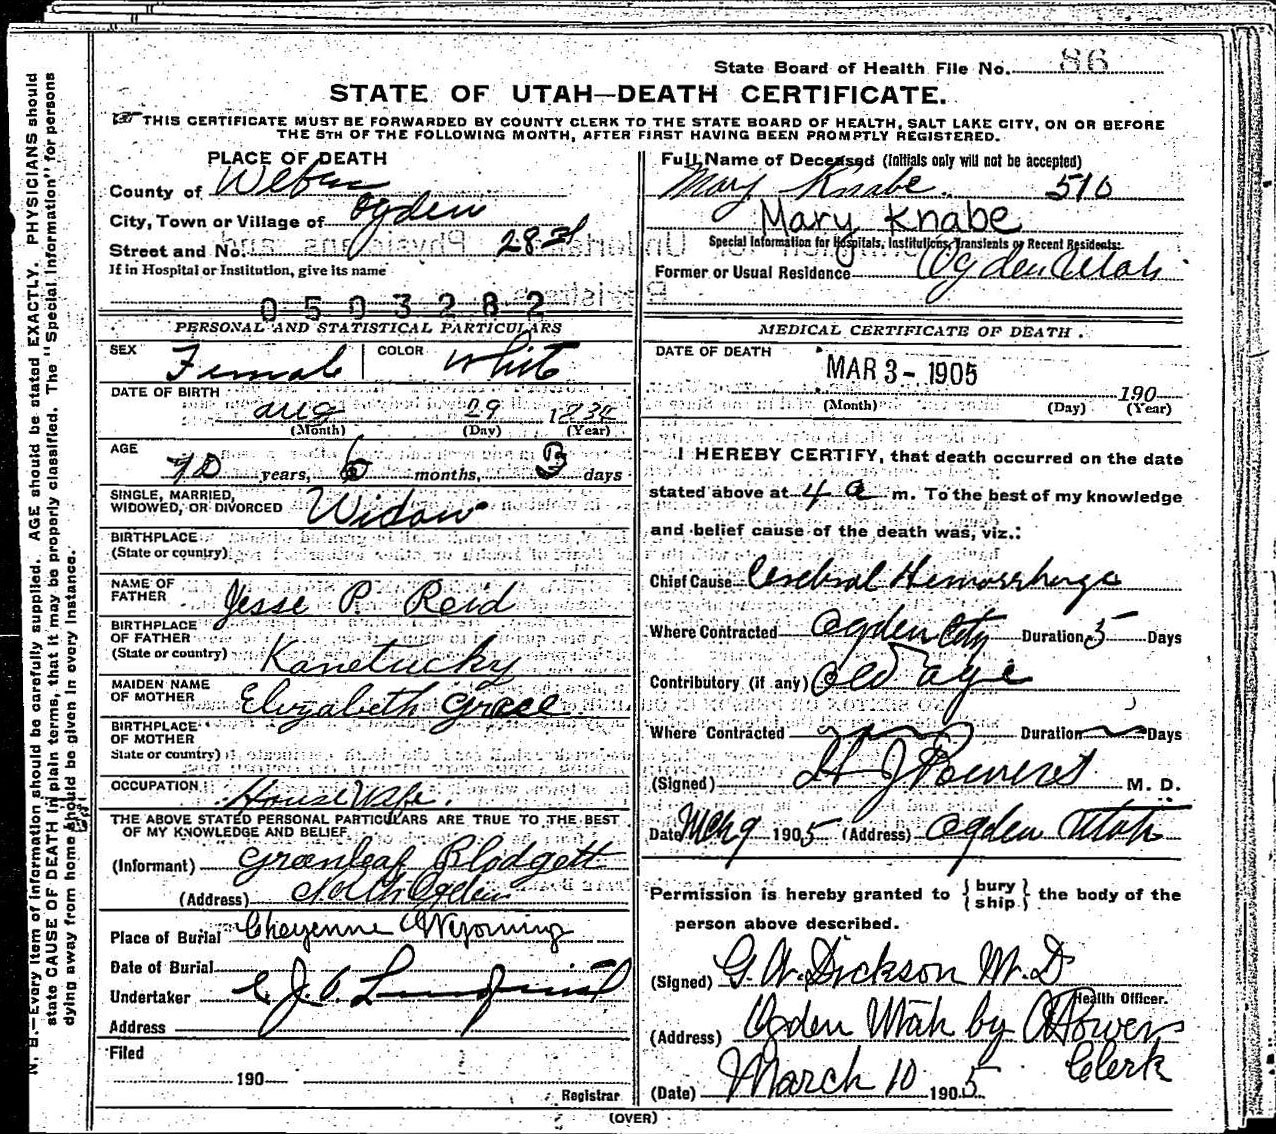 State Board of Health File No. 86
STATE OF UTAH—DEATH CERTIFICATE.
THIS CERTIFICATE MUST BE FORWARDED BY COUNTY CLERK TO THE STATE BOARD OF HEALTH, SALT LAKE CITY, ON OR BEFORE
THE 5TH OF THE FOLLOWING MONTH, AFTER FIRST HAVING BEEN PROMPTLY REGISTERED.
PLACE OF DEATH
County of Weber
City, Town or Village of Ogden
Street and No. 28
If in Hospital or Institution, give its name
0503282
PERSONAL AND STATISTICAL PARTICULARS
SEX Female COLOR White
DATE OF BIRTH Aug 29 1834
(Month) (Day) (Year)
AGE 70 years, 6 months, 3 days
SINGLE, MARRIED,
WIDOWED, OR DIVORCED Widow
BIRTHPLACE
(State or country)
NAME OF
FATHER Jesse P. Reid
BIRTHPLACE
OF FATHER
(State or country) Kanetucky
MAIDEN NAME
OF MOTHER Elizabeth Grace
BIRTHPLACE
OF MOTHER
State or country)
OCCUPATION House Wife.
THE ABOVE STATED PERSONAL PARTICULARS ARE TRUE TO THE BEST
OF MY KNOWLEDGE AND BELIEF
(Informant) Greenleaf Blodgett
(Address) North Ogden
Place of Burial Cheyenne Wyoming
Date of Burial
Undertaker
Address
Filed
190
Registrar
Full Name of Deceased (Initials only will not be accepted)
Mary Knabe. 510
Mary Knabe
Special Information for Hospitals, Institutions, Transients or Recent Residents:
Former or Usual Residence Ogden Utah
MEDICAL CERTIFICATE OF DEATH.
DATE OF DEATH MAR 3 - 1905
190
(Month) (Day) (Year)
I HEREBY CERTIFY, that death occurred on the date
stated above at 4 a m. To the best of my knowledge
and belief cause of the death was, viz.:
Chief Cause Cerebral Hemorrhage
Where Contracted Ogden City Duration 5 Days
Contributory (if any) Old age
Where Contracted Duration Days
(Signed) H J Powers M. D.
Date Mch 9 1905 (Address) Ogden Utah
Permission is hereby granted to { bury ship } the body of the
person above described.
(Signed) G. W. Dickson M.D
Health Officer.
(Address) Ogden Utah by Powers
Clerk
(Date) March 10 1905
(OVER)
N. B.—Every item of information should be carefully supplied. AGE should be stated EXACTLY. PHYSICIANS should
state CAUSE OF DEATH in plain terms, that it may be properly classified. The "Special Information" for persons
dying away from home should be given in every instance.